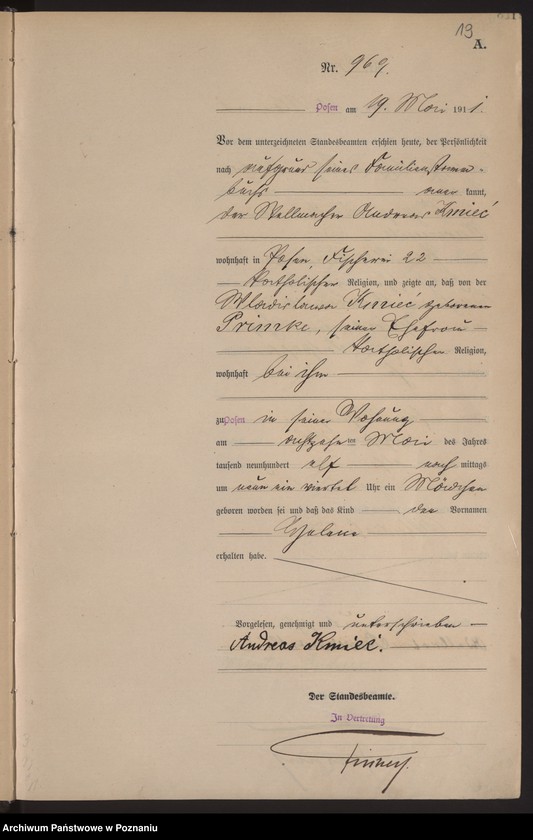 19
A.
Nr. 969.
Posen am 19. Mai 1911.
Vor dem unterzeichneten Standesbeamten erschien heute, der Persönlichkeit
nach aufgrund seines Familienstamm-
buchs aner kannt,
der Stellmacher Andreas Kmieć
wohnhaft in Posen, Fischerei 22
katholischer Religion, und zeigte an, daß von der
Wladislawa Kmieć geborenen
Primke, seiner Ehefrau
katholischer Religion,
wohnhaft bei ihm
zu Posen in seiner Wohnung
am achtzehn ten Mai des Jahres
tausend neunhundert elf nach mittags
um neun ein viertel Uhr ein Mädchen
geboren worden sei und daß das Kind den Vornamen
Helene
erhalten habe.
Vorgelesen, genehmigt und unterschrieben
Andreas Kmieć.
Der Standesbeamte.
In Vertretung
Archiwum Państwowe w Poznaniu